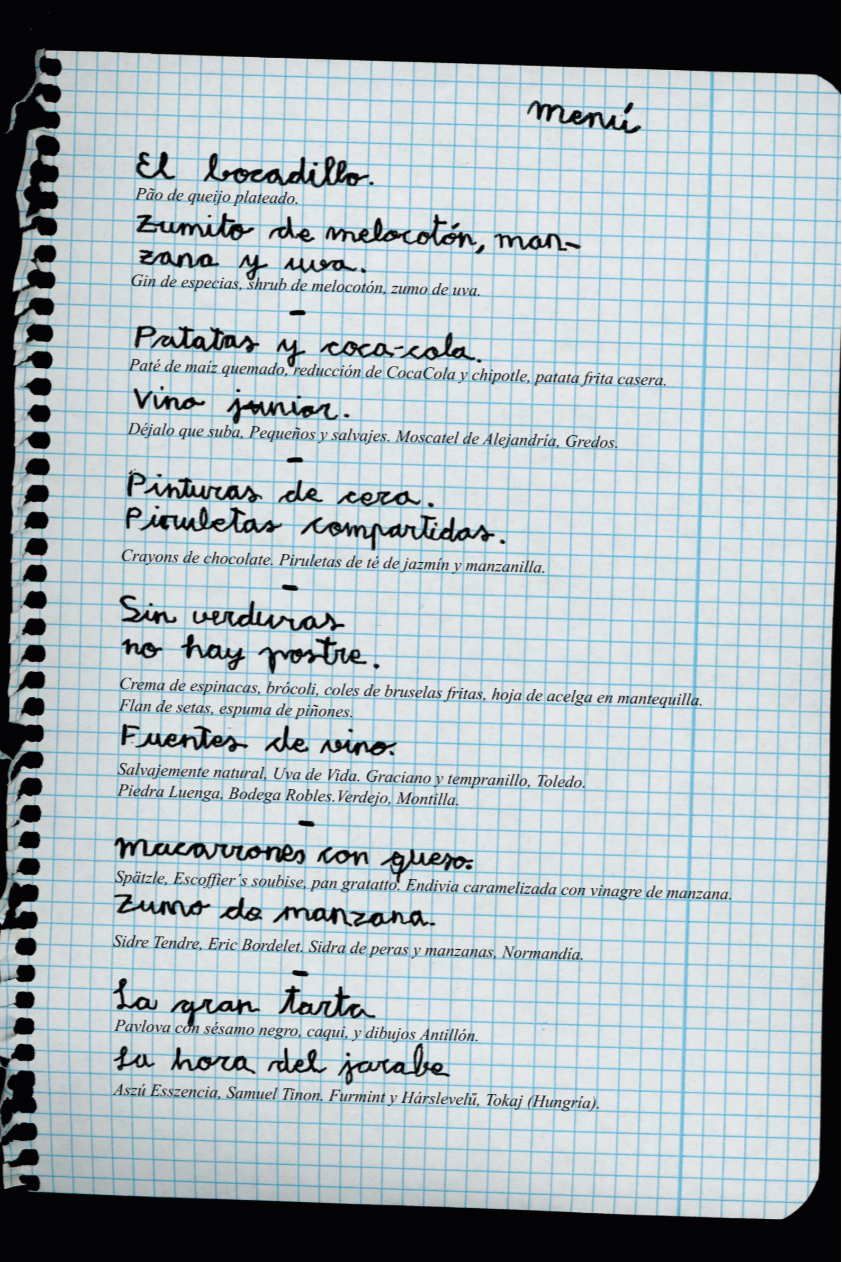 menú
El bocadillo.
Pão de queijo plateado.
Zumito de melocotón, man-
zana y uva.
Gin de especias, shrub de melocotón, zumo de uva.
-
Patatas y coca-cola.
Paté de maíz quemado, reducción de CocaCola y chipotle, patata frita casera.
Vino junior.
Déjalo que suba, Pequeños y salvajes. Moscatel de Alejandría, Gredos.
-
Pinturas de cera.
Piruletas compartidas.
Crayons de chocolate. Piruletas de té de jazmín y manzanilla.
-
Sin verduras
no hay postre.
Crema de espinacas, brócoli, coles de bruselas fritas, hoja de acelga en mantequilla.
Flan de setas, espuma de piñones.
Fuentes de vino.
Salvajemente natural, Uva de Vida. Graciano y tempranillo, Toledo.
Piedra Luenga, Bodega Robles.Verdejo, Montilla.
-
Macarrones con queso.
Spätzle, Escoffier´s soubise, pan gratatto. Endivia caramelizada con vinagre de manzana.
Zumo de manzana.
Sidre Tendre, Eric Bordelet. Sidra de peras y manzanas, Normandía.
-
La gran tarta
Pavlova con sésamo negro, caqui, y dibujos Antillón.
La hora del jarabe
Aszú Esszencia, Samuel Tinon. Furmint y Hárslevelű, Tokaj (Hungría).